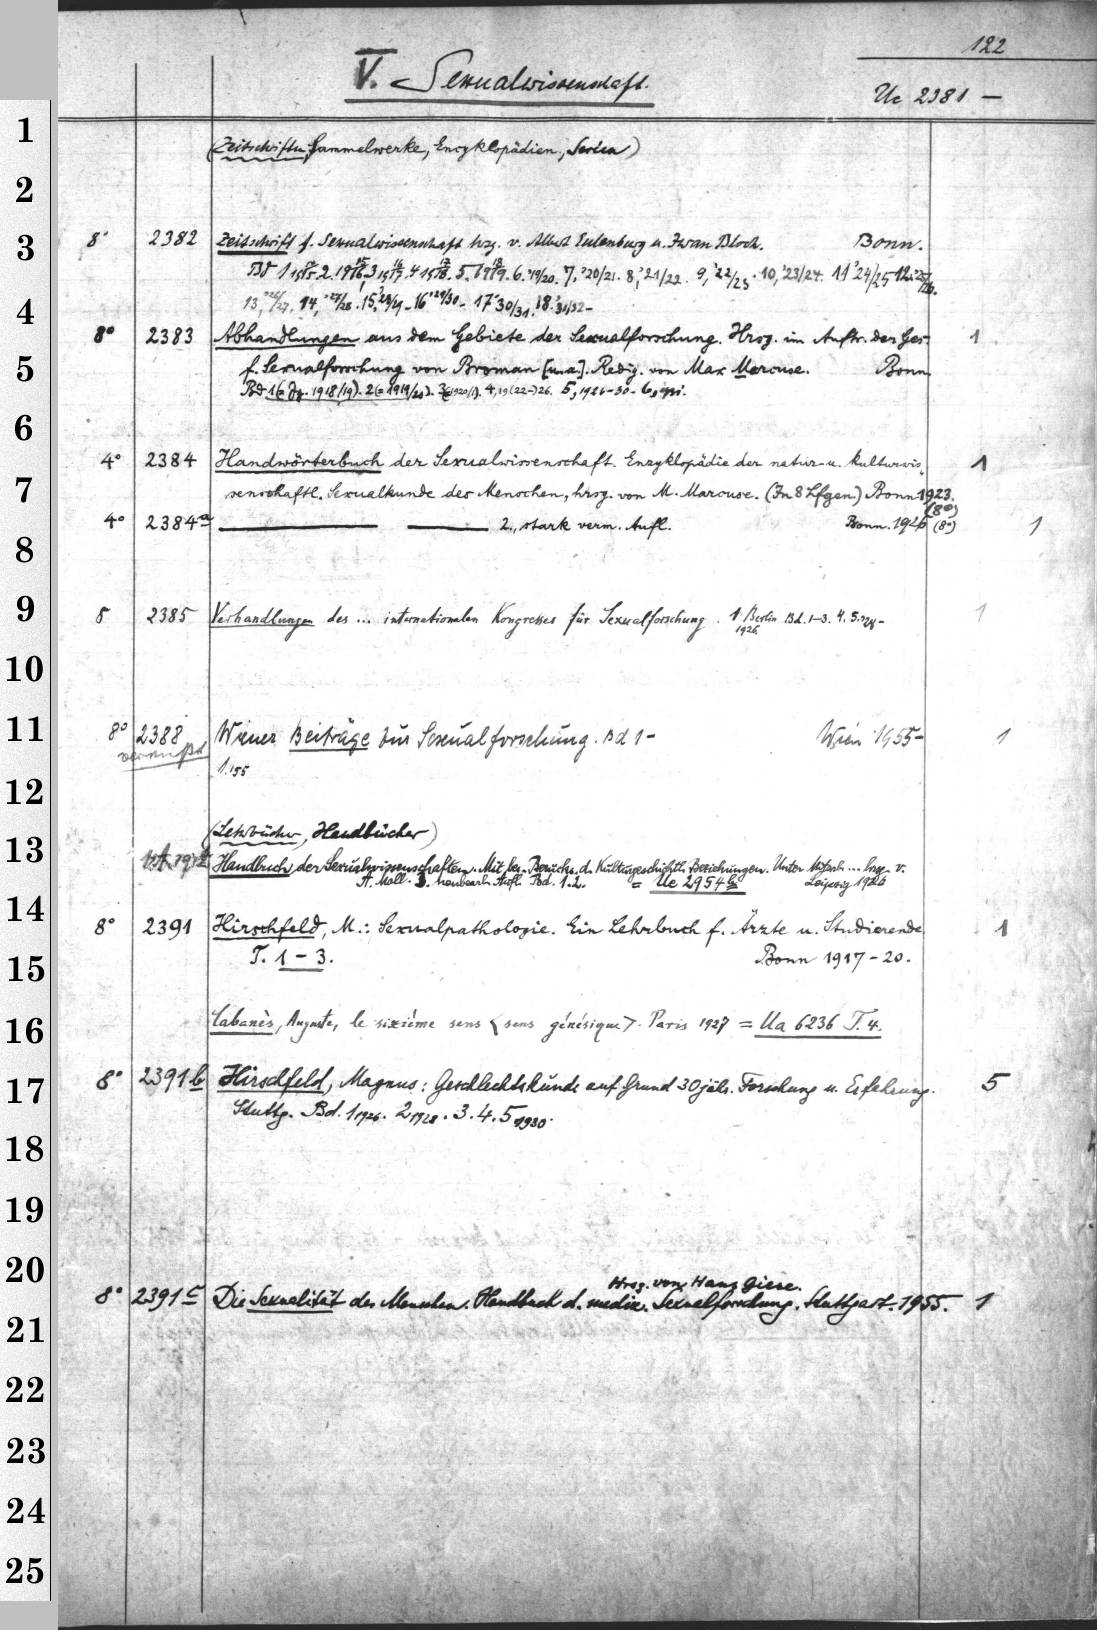 122
V. Sexualwissenschaft.
Uc 2381 —
1
(Zeitschriften, Sammelwerke, Encyklopädien, Serien)
2
3
8° 2382 Zeitschrift f. Sexualwissenschaft hrg. v. Albert Eulenburg u. Iwan Bloch. Bonn.
6.'19/20. 7,'20/21. 8,'21/22. 9,'22/23. 10,'23/24. 11'24/25 12.'25/26.
4
13,'26/27. 14,'27/28. 15,'28/29 - 16'29/30 - 17'30/31. 18.'31/32 -
8° 2383 Abhandlungen aus dem Gebiete der Sexualforschung. Hrsg. im Auftr. der Ges. 1
5
f. Sexualforschung von Broman [u.a.]. Redig. von Max Marcuse. Bonn
Bd 1 (= Jg. 1918/19). 2 (= 1919/20). 3 (=1920/1). 4, 19(22-)26. 5, 1926-30 -
6
4° 2384 Handwörterbuch der Sexualwissenschaft. Enzyklopädie der natur- u. kulturwis- 1
7
senschaftl. Sexualkunde des Menschen, hrsg. von M. Marcuse. (In 8 Lfgen.) Bonn 1923.
(8°)
4° 2384a ——— ——— 2., stark verm. Aufl. Bonn. 1926 (8°) 1
8
9
8 2385 Verhandlungen des ... internationalen Kongresses für Sexualforschung. 1 Berlin 1926 Bd. 1-3. 4. 5. 1
10
11
8° 2388 Wiener Beiträge zur Sexualforschung. Bd 1 - Wien 1955 - 1
vermißt
1.'55
12
(Lehrbücher, Handbücher)
13
Handbuch der Sexualwissenschaften. Mit bes. Berücks. d. Kulturgeschichtl. Beziehungen. Unter Mitarb. ... hrg. v.
A. Moll. 3. neubearb. Aufl. Bd. 1.2. = Uc 2954 Leipzig 1926
14
8° 2391 Hirschfeld, M.: Sexualpathologie. Ein Lehrbuch f. Ärzte u. Studierende 1
15
T. 1 - 3. Bonn 1917 - 20.
16
Cabanès, Auguste, le sixième sens <sens génésique>. Paris 1927 = Ua 6236 T. 4.
17
8° 2391b Hirschfeld, Magnus: Geschlechtskunde auf Grund 30jähr. Forschung u. Erfahrung. 5
Stuttg. Bd. 1 1926. 2 1928. 3. 4. 5 1930.
18
19
20
Hrsg. von Hans Giese.
8° 2391c Die Sexualität des Menschen. Handbuch d. mediz. Sexualforschung. Stuttgart. 1955. 1
21
22
23
24
25